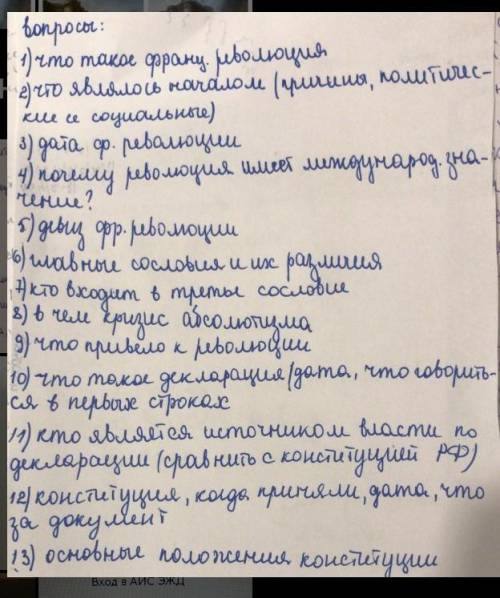 вопросы:
1) что такое франц. революция
2) что являлось началом (причины, политичес-
кие се социальные)
3) дата ф. революции
4) почему революция имеет международ. зна-
чение?
5) девиз фр. революции
6) главные сословия и их различия
7) кто входит в третье сословие
8) в чем кризис абсолютизма
9) что привело к революции
10) что такое декларация (дата, что говорить-
ся в первых строках
11) кто является источником власти по
декларации (сравнить с конституцией РФ)
12) конституция, когда приняли, дата, что
за документ
13) основные положения конституции
Вход в АИС ЭЖД